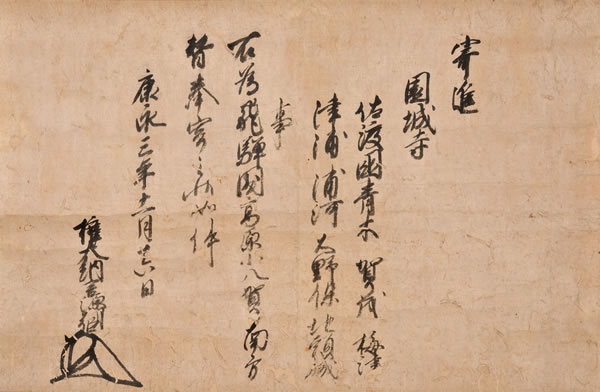 寄進
園城寺
佐渡国青木 賀茂 梅津
津浦 浦河 大野保地頭職
事
右為飛騨国高原小八賀南方
替奉寄之状如件
康永三年十一月廿六日
権大納言源朝臣